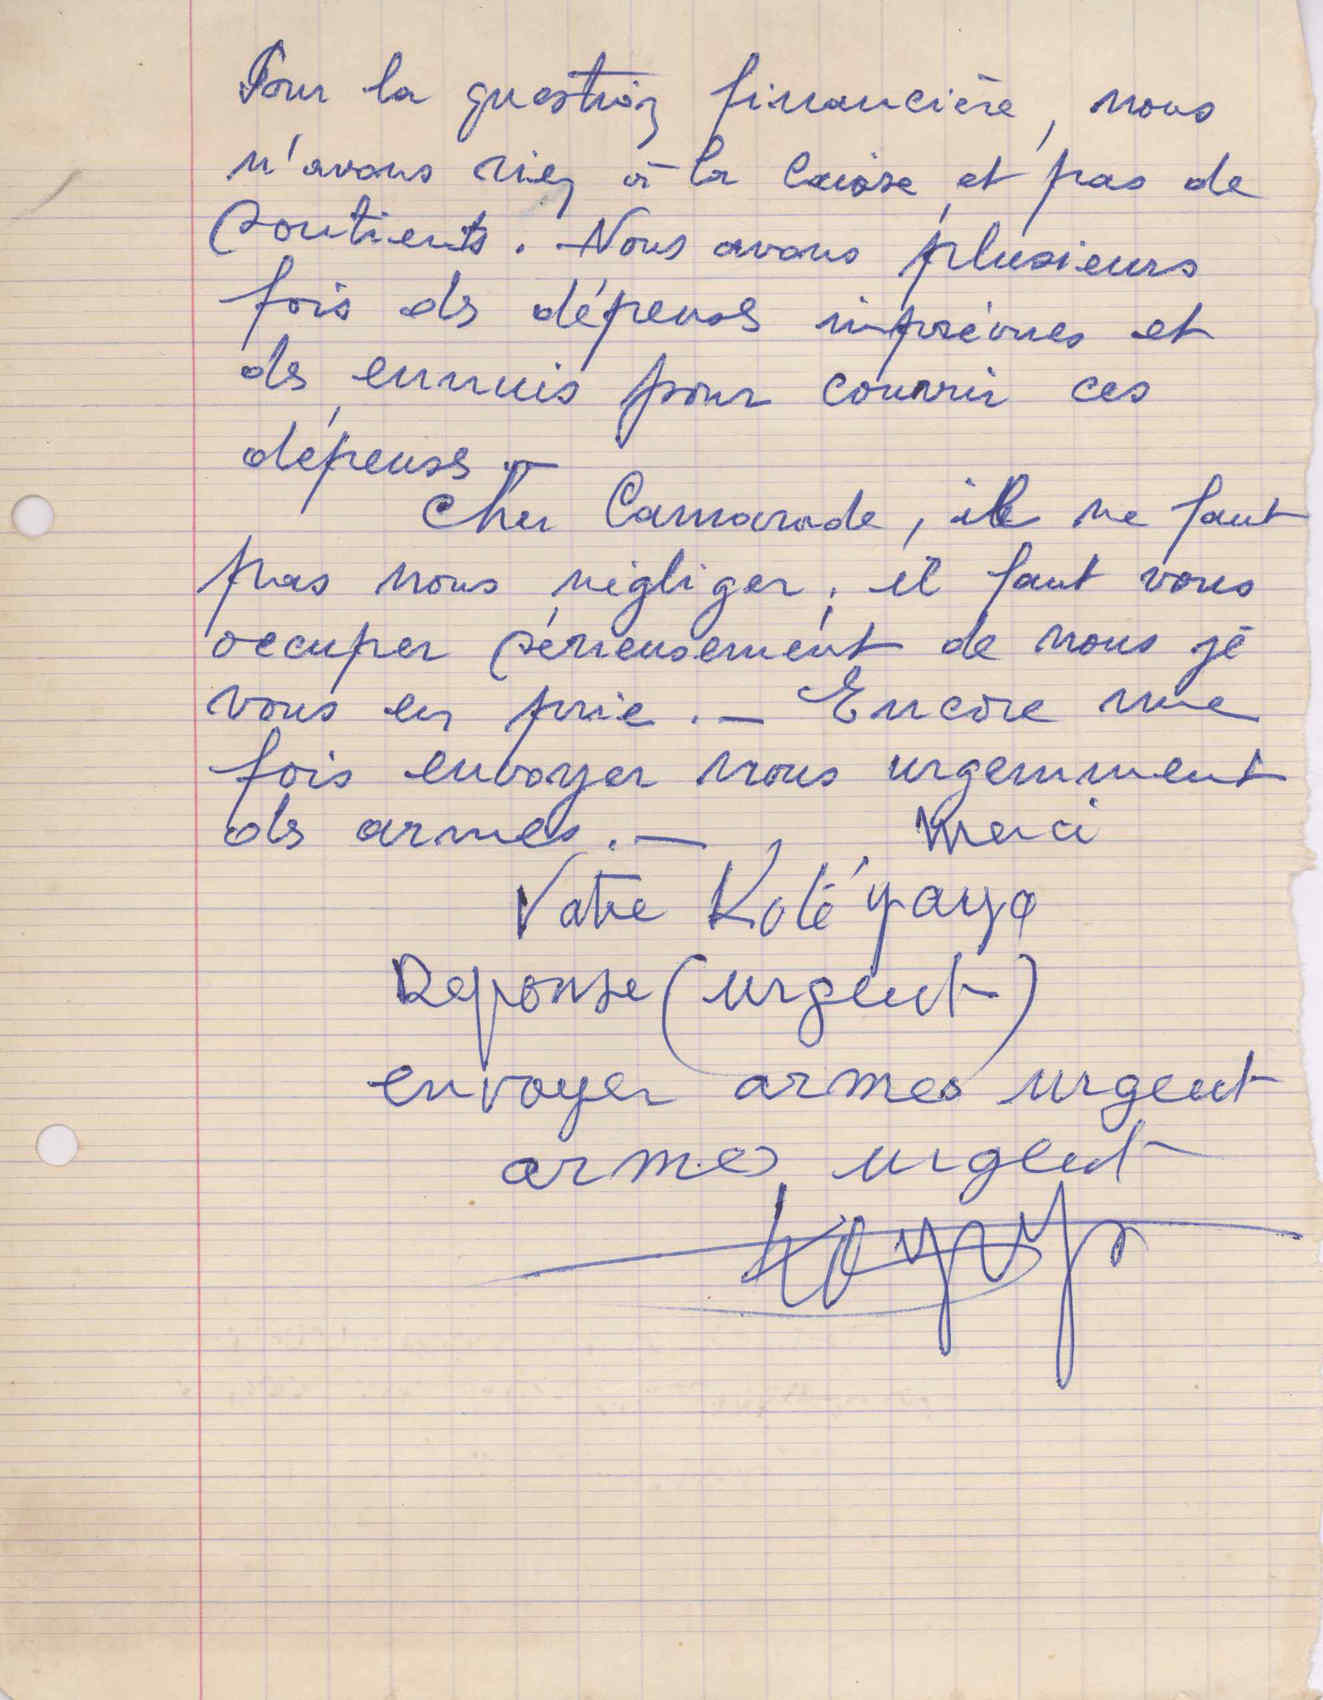 Pour la question financière, nous
n'avons rien à la Caisse et pas de
soutients. Nous avons plusieurs
fois des dépenses imprévues et
des ennuis pour couvrir ces
dépenses.—
Cher Camarade, il ne faut
pas nous négliger, il faut vous
occuper sérieusement de nous je
vous en prie.— Encore une
fois envoyer nous urgemment
des armes.— Merci
Votre Kolé yaya
Reponse (urgent)
envoyer armes urgent
armes urgent